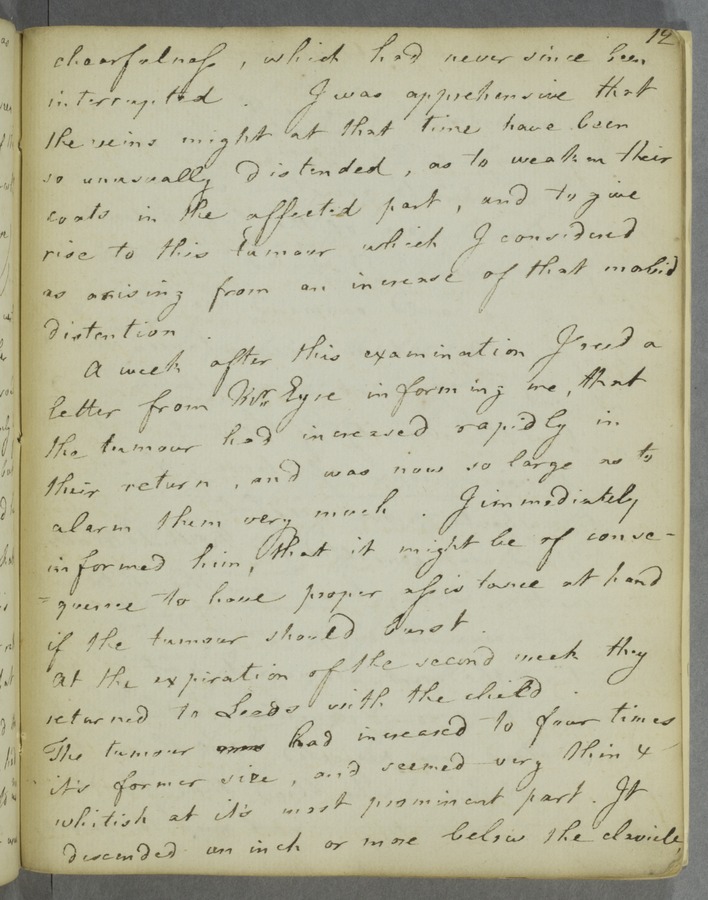 12
chearfulness, which had never since been
interrupted. I was apprehensive that
the veins might at that time have been
so unusually distended, as to weaken their
coats in the affected part, and to give
rise to this tumour which I considered
as arising from an increase of that morbid
distention.
A week after this examination I recd a
letter from Mr Eyre informing me, that
the tumour had increased rapidly in
their return, and was now so large as to
alarm them very much. I immediately
informed him, that it might be of conse-
=quence to have proper assistance at hand
if the tumour should burst.
At the expiration of the second week they
returned to Leeds with the child.
The tumour had increased to four times
it's former size, and seemed very thin &
whitish at it's most prominent part. It
descended an inch or more below the clavicle,